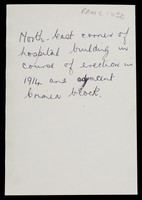 North-East corner of
hospital building in
course of erection in
1914 and adjacent
block.